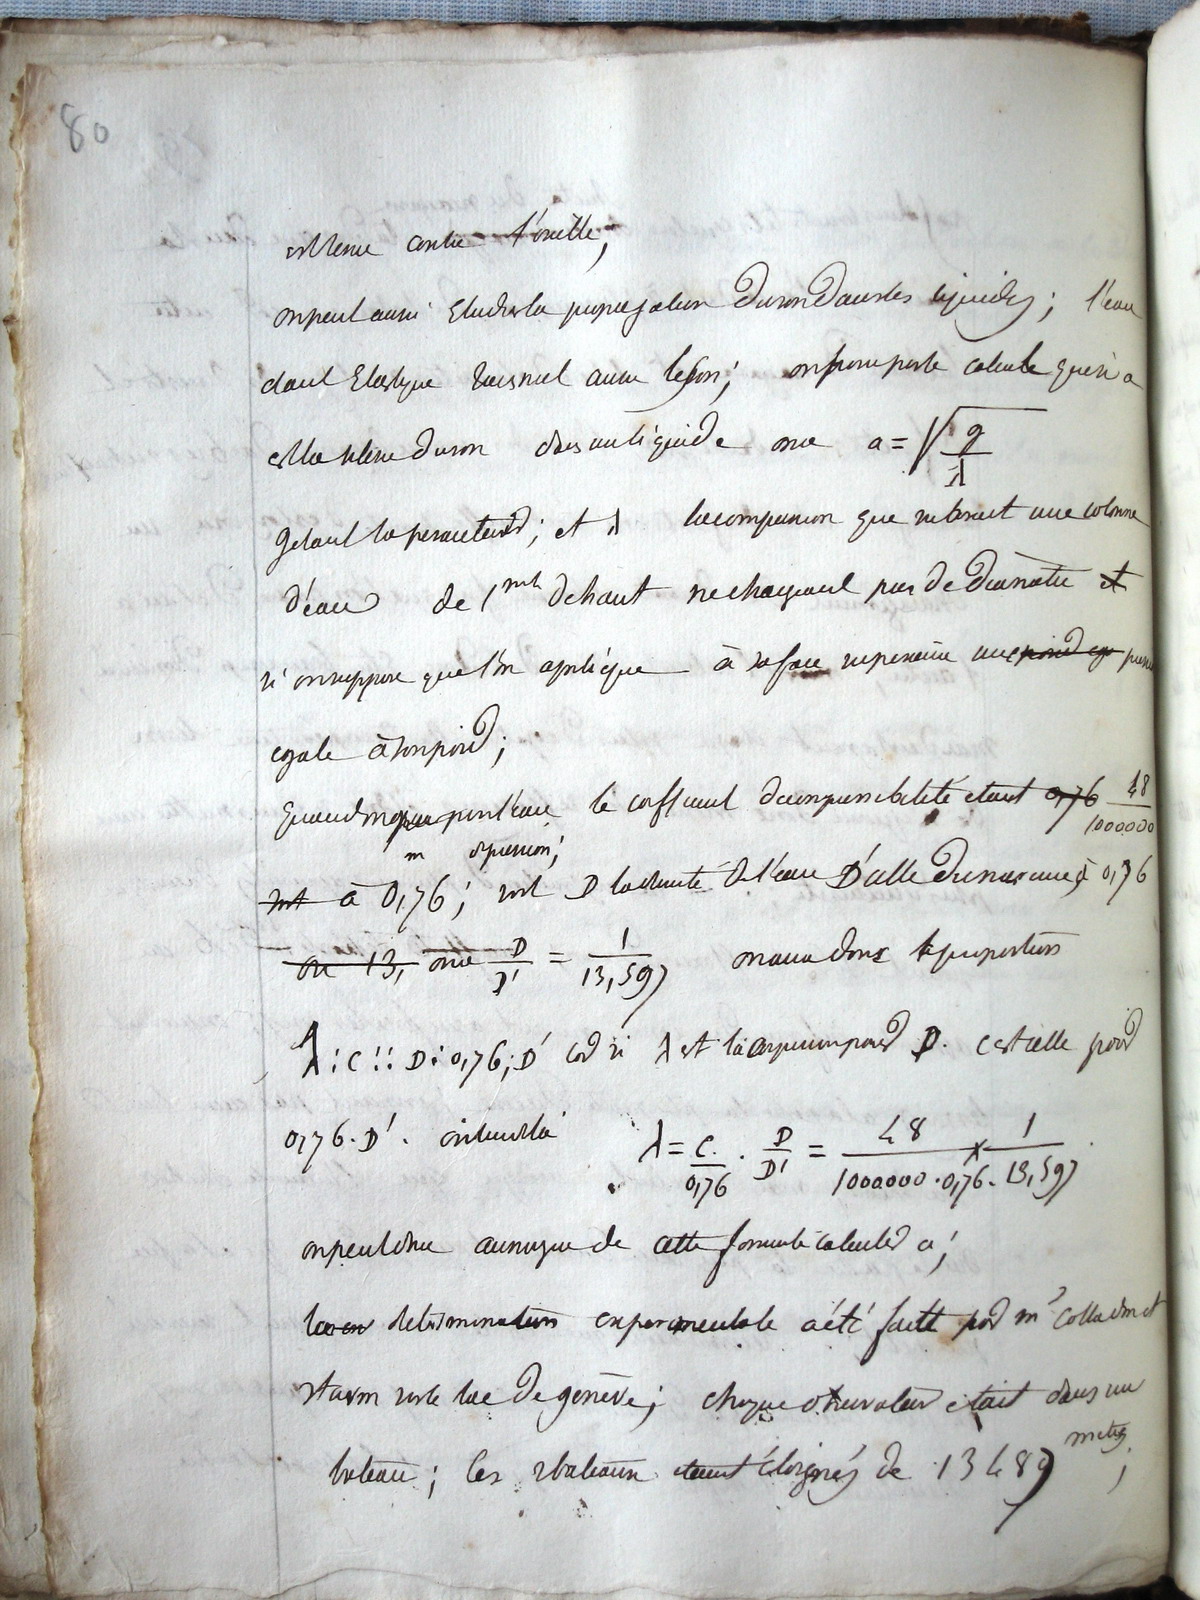 80
est tenue contre l'oreille;
on peut aussi Etudier la propagation du son dans les liquides; l'eau
étant Elastique transmet aussi le son; on prouve par le calcul que si a
est la vitesse du son dans un liquide on a a = √(g/λ)
g étant la pesanteur; et λ la compression que subirait une colonne
d'eau de 1 met de haut ne changeant pas de diamètre et
si on suppose que l'on applique à sa face supérieure une poids eg pression
egale à son poids;
quand on pour l'eau le coefficient de compressibilité étant 0,76 48/1000000
m de pression;
est à 0,76; soit D la densité de l'eau D' celle du mercure à 0,76
ou 13, on a D/D' = 1/13,597 on aura donc la proportion
λ : C :: D : 0,76 ; D' car si λ est la compression pour D. C est celle pour
0,76. D'. on tire de là λ = C/0,76 . D/D' = 48/1000000 . 0,76 x 1/13,597
on peut donc au moyen de cette formule calculer a;
la en determination experimentale a été faite par mr Colladon et
sturm sur le lac de genève; chaque observateur était dans un
bateau; les 2 bateaux étaient éloignés de 13487 metres;